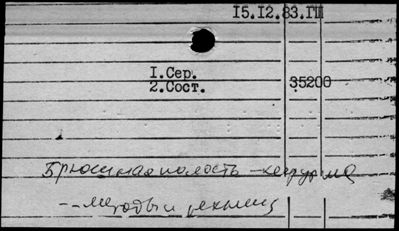 15.12.83.ГПІ
1.Сер.
35200
2.Сост.
Брюшная полость - хирургия
-- методы и техника